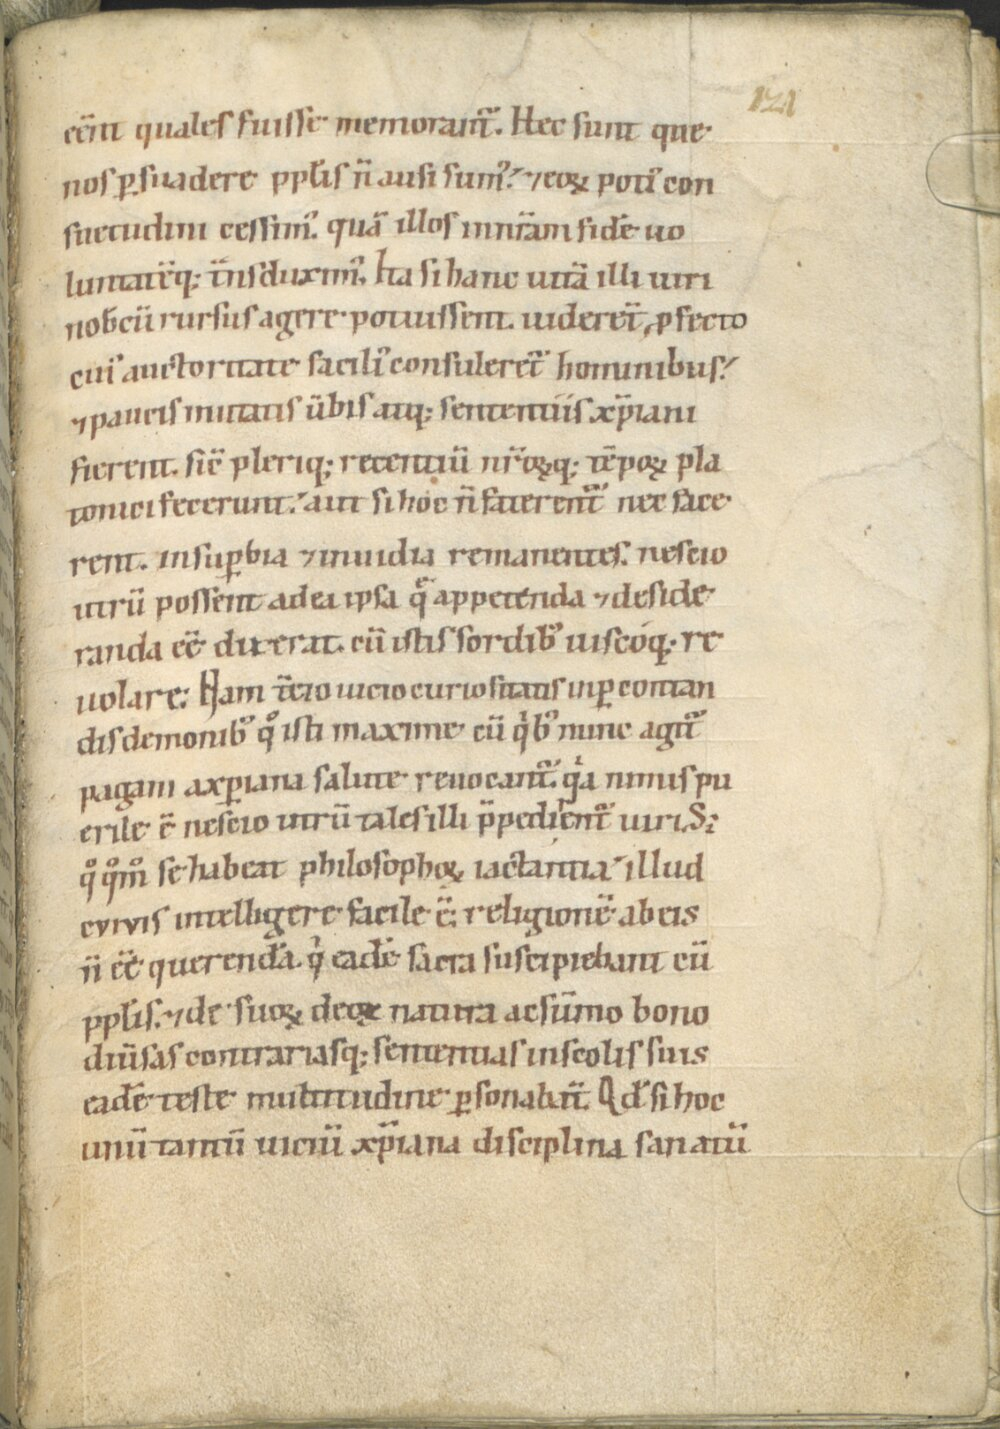 121
eēnt quales fuisse memorant᷑. Hec sunt que
nos ꝑsuadere pplis n̄ ausi sumꝰ. ⁊ eoꝝ potiꝰ con
suetudini cessimꝰ. quā illos in nr̄am fidē uo
luntatēq; t̄nsduximꝰ. Ita si hanc uitā illi uiri
nobcū rursus agere potuissent. uiderēt, ꝓfecto
cuiꝰ auctoritate faciliꝰ consuleret᷑ hominibus.
⁊ paucis mutatis ūbis atq; sententiis xp̄iani
fierent. sic̄ pleriq; recentiū nr̄oꝝq; tēpoꝝ pla
tonici fecerunt. aut si hoc n̄ faterent᷑ nec face
rent. in suꝑbia ⁊ inuidia remanentes. nescio
utrū possent ad ea ipsa q̄ appetenda ⁊ deside
randa eē̄ dixerat. cū istis sordibꝰ uiscoq; re
uolare; Nam t̄cio uicio curiositatis in ꝑcontan
dis demonibꝰ qͦ isti maxime cū qͥbꝰ nunc agit᷑
pagani a xp̄iana salute reuocant᷑. qͣa nimis pu
erile ē̄ nescio utrū tales illi p̄pedirent᷑ uiri. S;
qͦqͦmͦ se habeat philosophoꝝ iactantia. illud
cvivis intelligere facile ē; religionē ab eis
n̄ eē̄ querendā. qͥ eadē sacra suscipiebant cū
pplis. ⁊ de suoꝝ deoꝝ natura ac sūmo bono
diūsas contrariasq; sententias in scolis suis
eadē teste multitudine ꝑsonabant᷑. Qd̄ si hoc
unū tantū uiciū xp̄iana disciplina sanatū